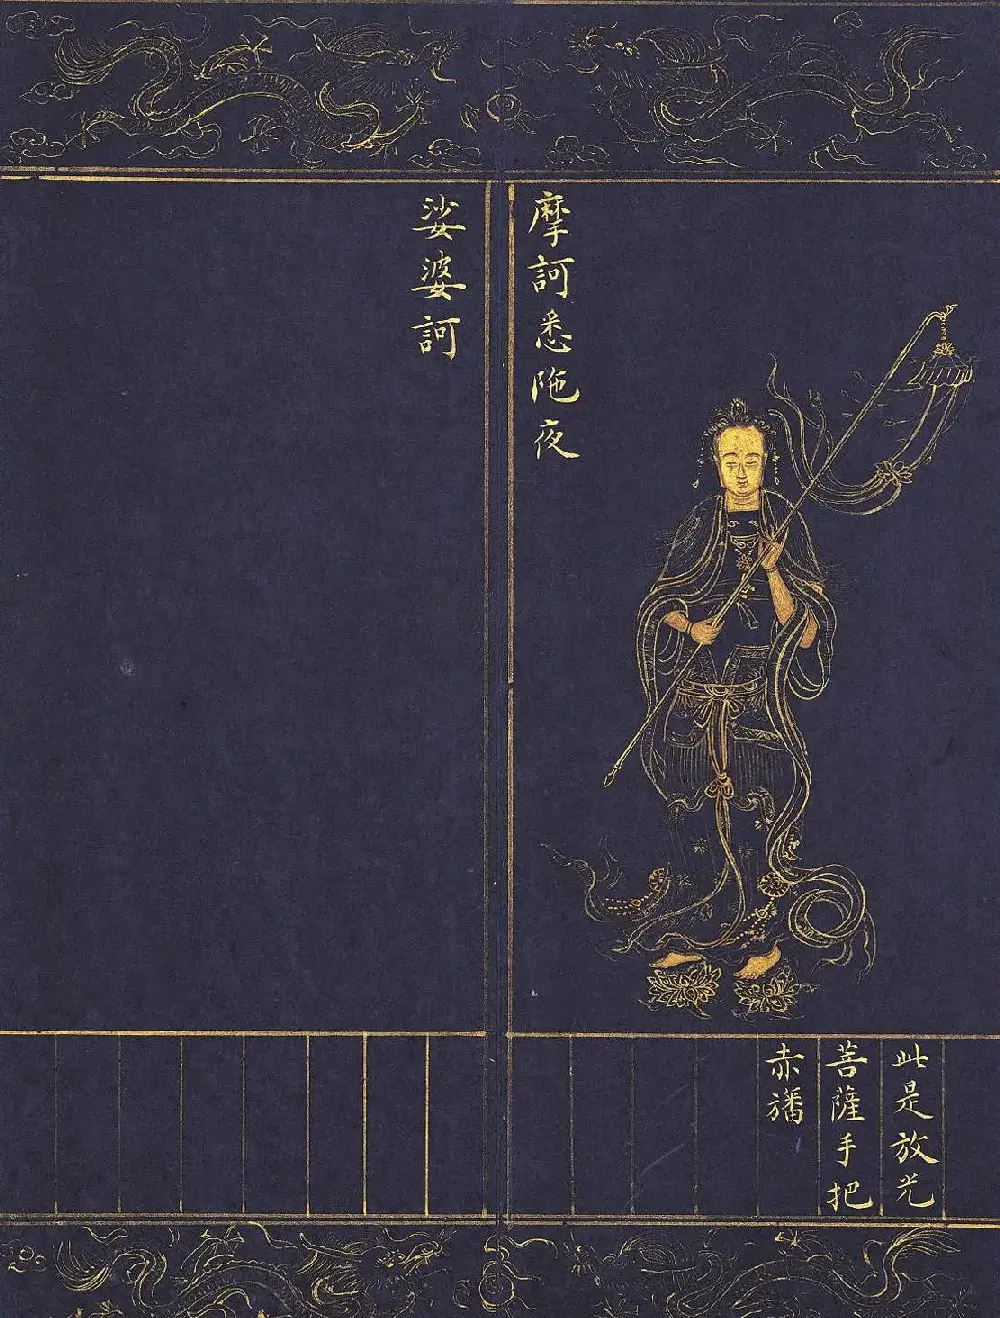 摩訶悉陁夜
娑婆訶
此是放光
菩薩手把
赤旛